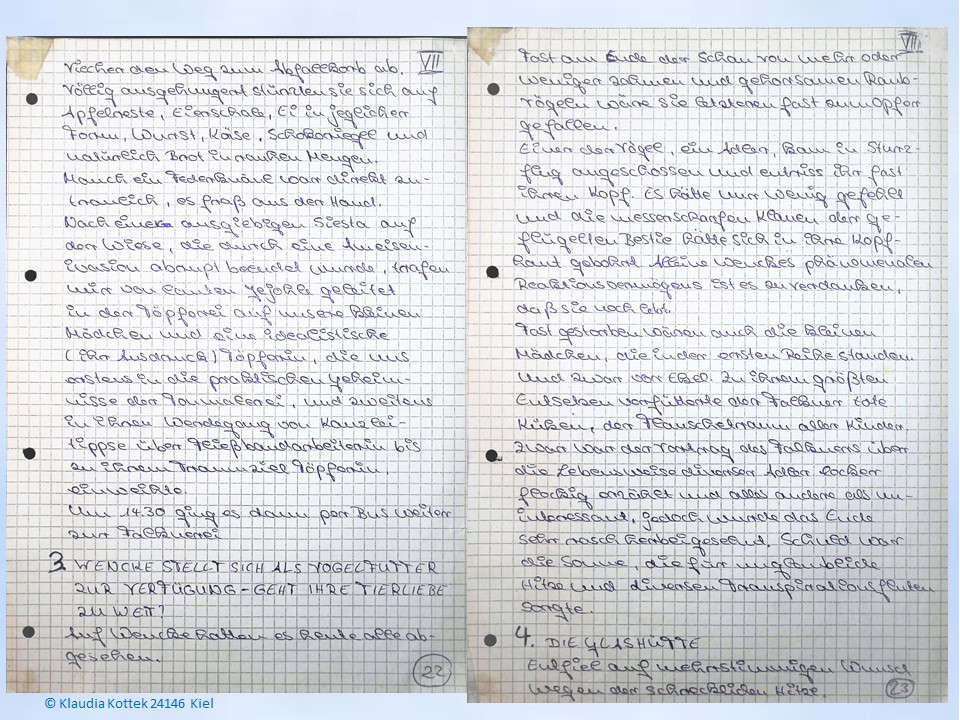 VII
viecher den Weg zum Abfallkorb ab.
Völlig ausgehungert stürzten sie sich auf
Apfelreste, Eierschale, Ei in jeglicher
Form, Wurst, Käse, Schokoriegel und
natürlich Brot in rauhen Mengen.
Manch ein Federknäuel war direkt zu-
traulich, es fraß aus der Hand.
Nach einer ausgiebigen Siesta auf
der Wiese, die durch eine Ameisen-
ivasion abrupt beendet wurde, trafen
wir von lauten Gejohle geleitet
in der Töpferei auf unsere kleinen
Mädchen und eine idealistische
(ihr Ausdruck) Töpferin, die uns
erstens in die praktischen Geheim-
nisse der Tonmalerei, und zweitens
in ihren Werdegang von Kanzlei-
tippse über Fließbandarbeiterin bis
zu ihrem Traumziel Töpferin,
einweihte.
Um 14.30 ging es dann per Bus weiter
zur Falknerei
3. WENCKE STELLT SICH ALS VOGELFUTTER
ZUR VERFÜGUNG - GEHT IHRE TIERLIEBE
ZU WEIT?
Auf Wencke hatten es heute alle ab-
gesehen.
22
VIII
Fast am Ende der Schau von mehr oder
weniger zahmen und gehorsamen Raub-
vögeln wäre sie letzteren fast zum Opfer
gefallen.
Einer der Vögel, ein Adler, kam in Sturz-
flug angeschossen und entriss ihr fast
ihren Kopf. Es hätte nur wenig gefehlt
und die messerscharfen Klauen der ge-
flügelten Bestie hätte sich in ihre Kopf-
haut gebohrt. Alleine Wenckes phänomenalen
Reaktionsvermögens ist es zu verdanken,
daß sie noch lebt.
Fast gestorben wären auch die kleinen
Mädchen, die in der ersten Reihe standen.
Und zwar vor Ekel. Zu ihrem größten
Entsetzen verfütterte der Falkner tote
Küken, der Flauscheltraum aller Kinder.
Zwar war der Vortrag des Falkners über
die Lebensweise diverser Adler locker
flockig erzählt und alles andere als un-
interessant, jedoch wurde das Ende
sehr rasch herbeigesehnt. Schuld war
die Sonne, die für unglaubliche
Hitze und diversen Transpirationsfluten
sorgte.
4. DIE GLASHÜTTE
Entfiel auf mehrstimmigen Wunsch
wegen der schrecklichen Hitze.
23
© Klaudia Kottek 24146 Kiel